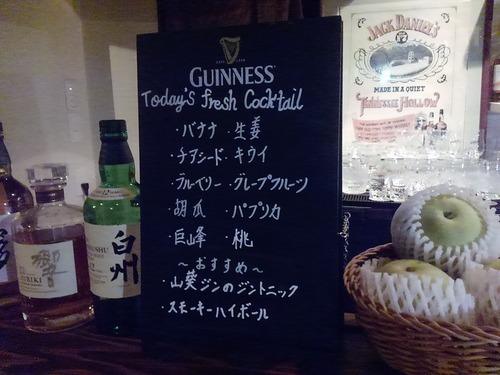 GUINNESS
Today's fresh Cocktail
・バナナ ・生姜
・チアシード・キウイ
・ブルーベリー・グレープフルーツ
・胡瓜 ・パプリカ
・巨峰 ・桃
～おすすめ～
・山葵ジンのジントニック
・スモーキーハイボール
JACK DANIEL'S
MADE IN A QUIET
Tennessee Hollow
響
HIBIKI
白州